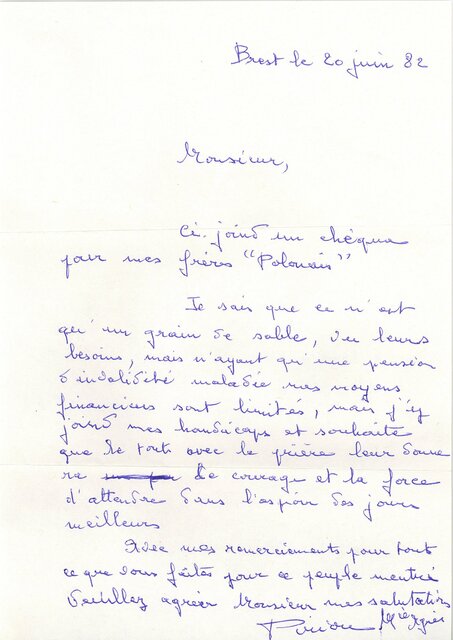 Brest le 20 juin 82
Monsieur,
Ci-joint un chèque
pour mes frères "Polonais"
Je sais que ce n'est
qu'un grain de sable, vu leurs
besoins, mais n'ayant qu'une pension
d'invalidité maladie mes moyens
financiers sont limités, mais j'y
joind mes handicaps et souhaite
que le tout avec la prière leur donne
ra le courage et la force
d'attendre dans l'espoir des jours
meilleurs
Avec mes remerciements pour tout
ce que vous faîtes pour ce peuple meurtri
Veuillez agréer Monsieur mes salutations